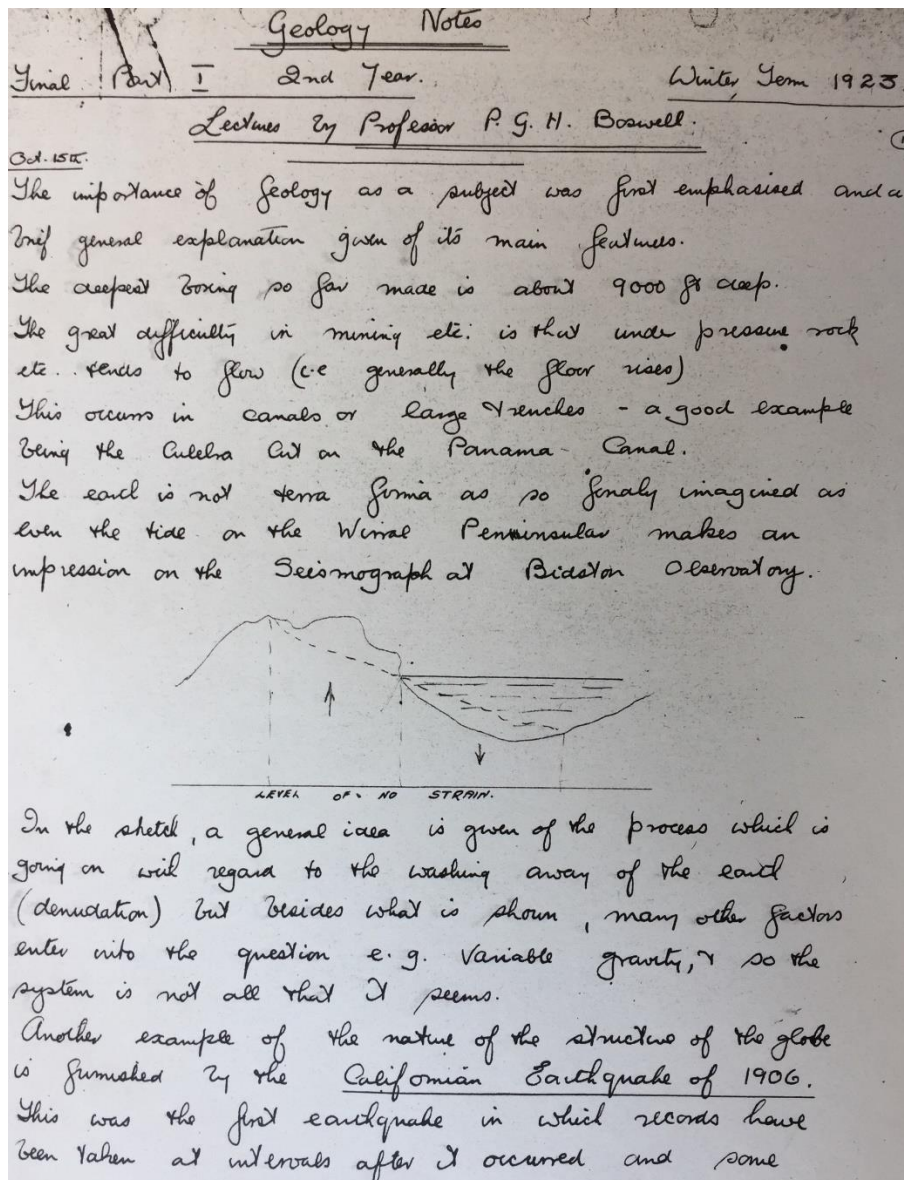 Geology Notes
Final Part I 2nd Year. Winter Term 1923.
Lectures by Professor P. G. H. Boswell.
Oct. 15th.
The importance of Geology as a subject was first emphasised and a
brief general explanation given of its main features.
The deepest boring so far made is about 9000 ft deep.
The great difficulty in mining etc. is that under pressure rock
etc.. tends to flow (i.e generally the floor rises)
This occurs in canals or large trenches - a good example
being the Culebra Cut on the Panama - Canal.
The earth is not terra firma as so fondly imagined as
even the tide on the Wirral Penninsular makes an
impression on the Seismograph at Bidston Observatory.
LEVEL OF NO STRAIN.
In the sketch, a general idea is given of the process which is
going on with regard to the washing away of the earth
(denudation) but besides what is shown, many other factors
enter into the question e.g. Variable gravity, & so the
system is not all that it seems.
Another example of the nature of the structure of the globe
is furnished by the Californian Earthquake of 1906.
This was the first earthquake in which records have
been taken at intervals after it occurred and some